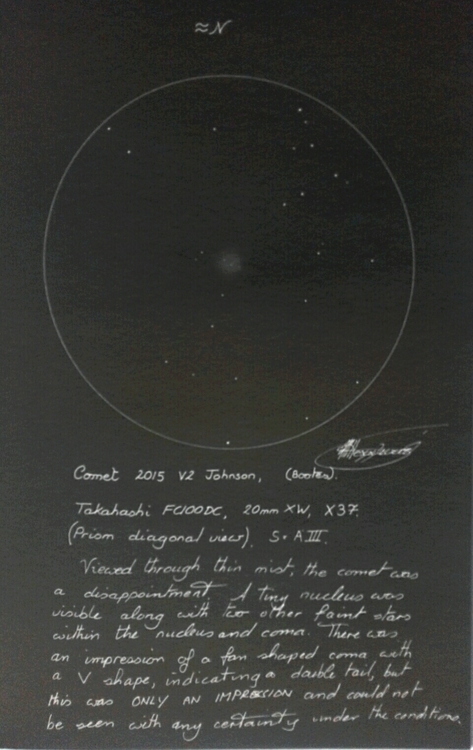 ≈N
Comet 2015 V2 Johnson, (Bootes).
Takahashi FC100DC, 20mm XW, X37.
(Prism diagonal view). S. A.III.
Viewed through thin mist, the comet was
a disappointment. A tiny nucleus was
visible along with two other faint stars
within the nucleus and coma. There was
an impression of a fan shaped coma with
a V shape, indicating a double tail, but
this was ONLY AN IMPRESSION and could not
be seen with any certainty under the conditions.